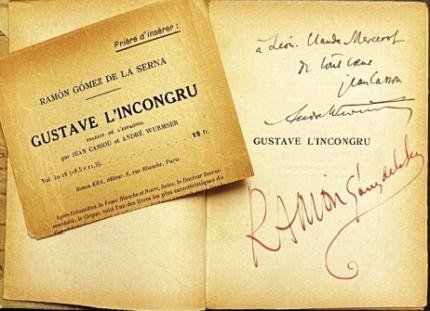 Prière d'insérer :
RAMÓN GÓMEZ DE LA SERNA
GUSTAVE L'INCONGRU
TRADUIT DE L'ESPAGNOL
par JEAN CASSOU et ANDRÉ WURMSER
Vol. in-16 15 fr.
Simon Kra, éditeur, 6, rue Blanche, Paris
Après Échantillon, la Veuve Blanche et Noire, Seins, le Docteur Invrai-
semblable, le Cirque, voici l'un des livres les plus caractéristiques du
à Léon Claude Mercerot
de tout cœur
Jean Cassou
André Wurmser
GUSTAVE L'INCONGRU
RAMÓN Gómez de la Serna